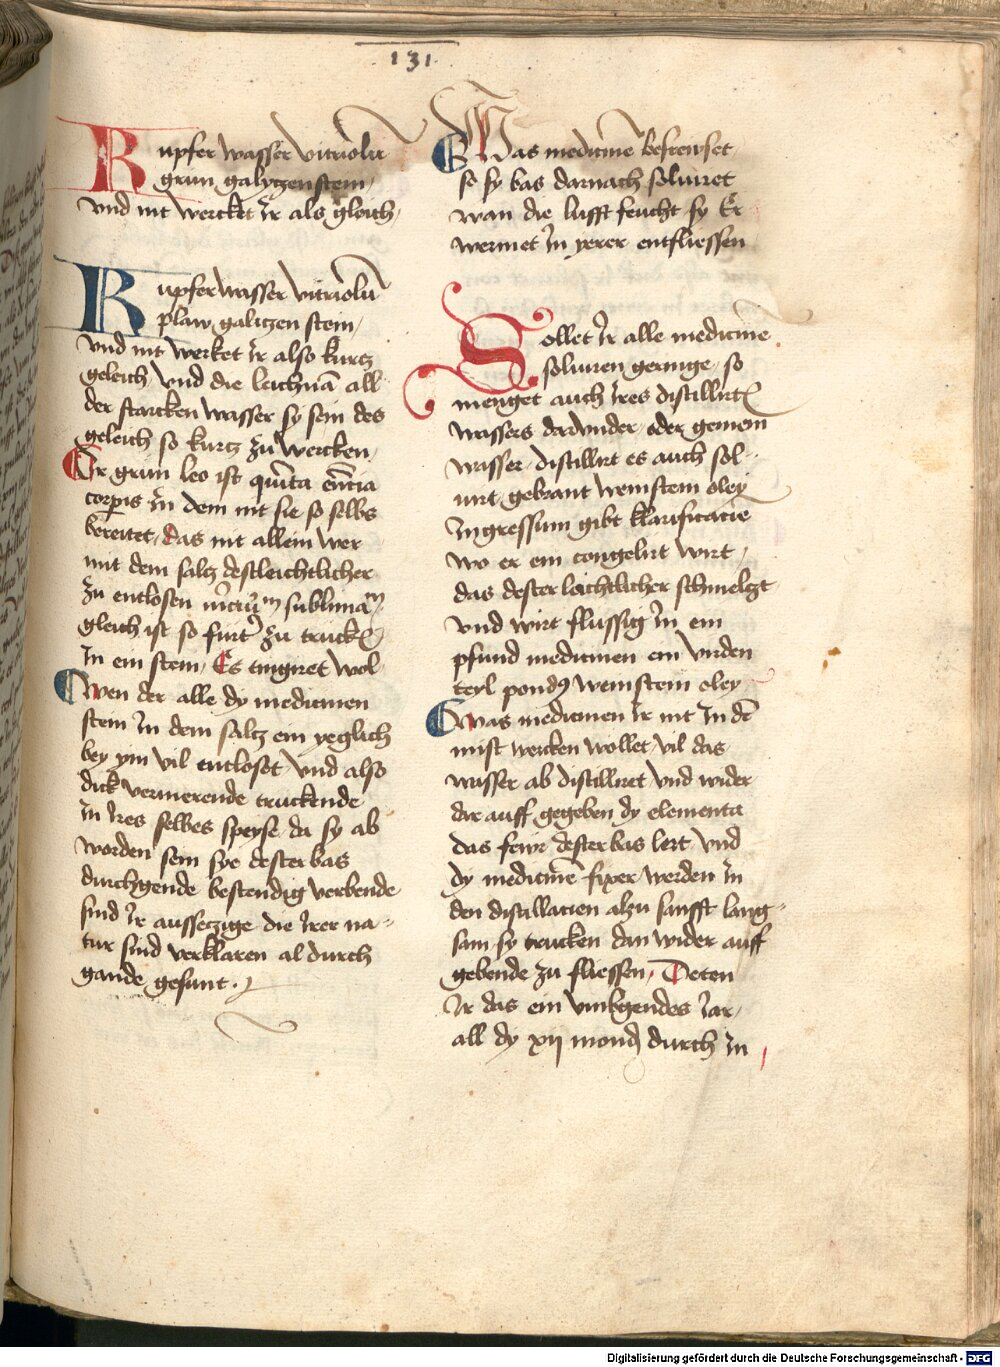 131
Kupfer wasser vitriolum
grun galytzen stein
vnd mt werckt ir als gleich
Kupfer wasser vitriolum
plaw galitzen stein
vnd mt werket ir also kurtz
geleich vnd die leichnam all
der starcken wasser sy sein des
geleich so kurtz zu wercken
Er grun leo ist quinta encia
corpis in dem mt sie so selbs
bereitet das mt allein wer
mit dem saltz destleichtlicher
zu entlosen
gleich ist so furt zu truck
In ein stein Es tingiret wol
wen der alle dy medicinen
stein in dem saltz ein yeglich
bey ym vil entloset vnd also
dick vermerende truckende
in ires selbes speyse da sy ab
worden sein sye dester bas
durchgende bestendig verbende
sind ir aussetzige die irer na-
tur sind verklaren al durch
gande gesunt
Was medicine befrewset
so sy bas darnach soluiret
wan die lufft feucht sy er
wermet in yerer entfliessen
Sollet ir alle medicine
soluiren geringe so
menget auch ires distillirt
wassers darunder oder gemein
wasser distillirt es auch sol-
uirt gebrant weinstein oley
Ingressum gibt klarificacie
wo er ein congelirt wirt
das dester leichtlicher schmeltzt
vnd wirt flussig in ein
pfund medicinen ein virden
teyl pondus weinstein oley
was medicinen ir mt in der
mist wercken wollet vil das
wasser ab distilliret vnd wider
dar auff gegeben dy elementa
das fewr dester bas lert vnd
dy medicine fixer werden in
den distillacien alzu sanfft lang-
sam sy trucken dan wider auff
gebende zu fliessen Deten
ir das ein vmbgendes iar
all dy xij mond durch in
Digitalisierung gefördert durch die Deutsche Forschungsgemeinschaft - DFG